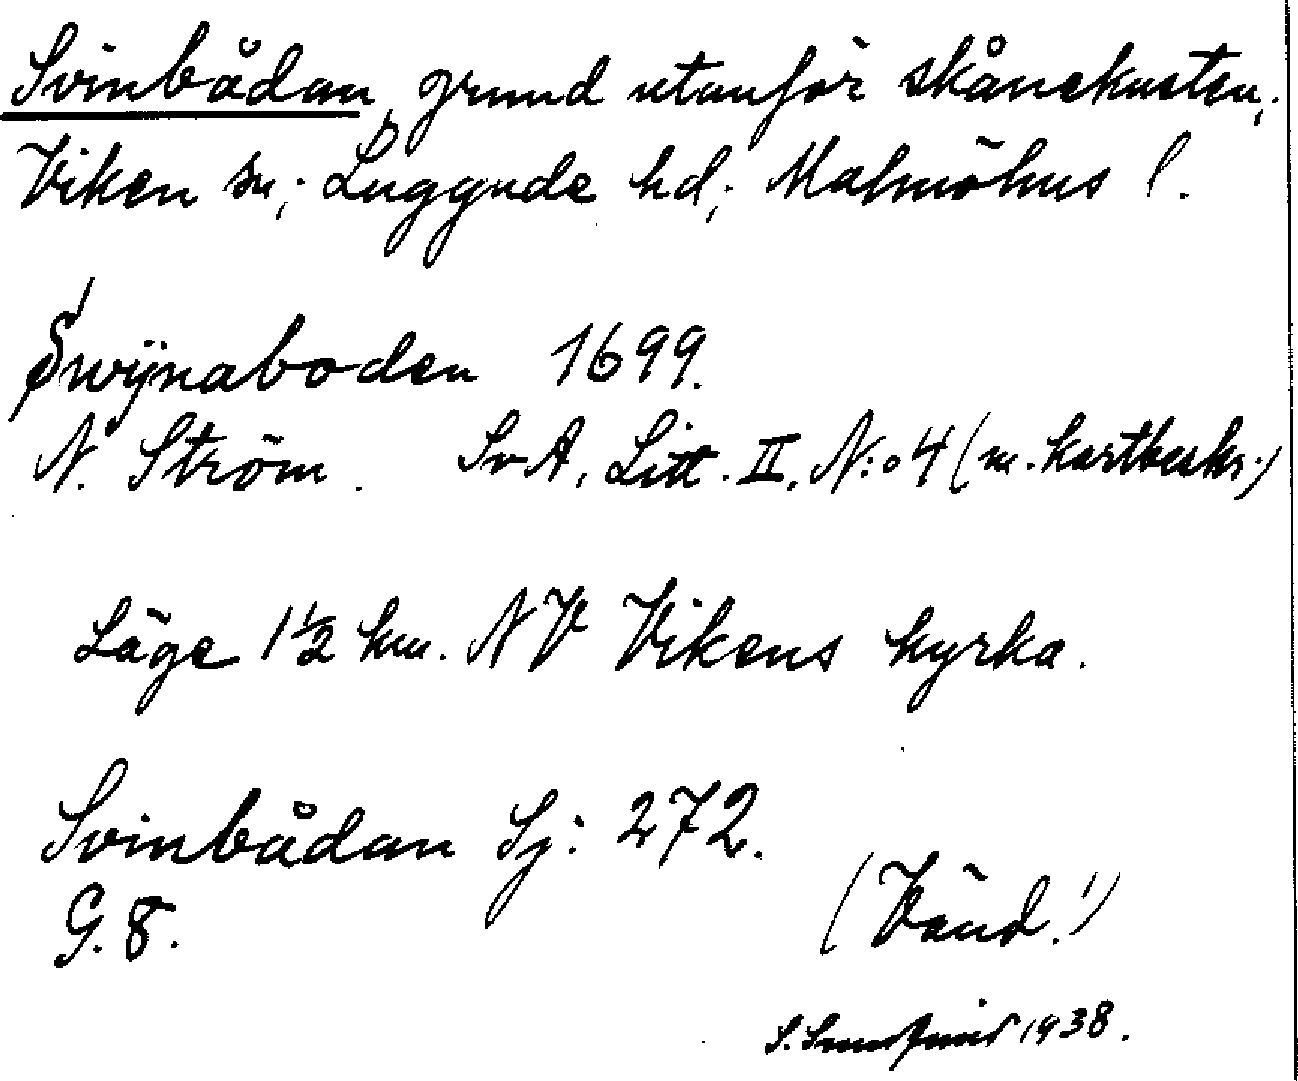 Svinbådan, grund utanför skånekusten,
Viken sn; Luggude hd; Malmöhus l.
Swÿnaboden 1699.
N. Ström. SvA, Litt. II, N:o 4 (m. kartbeskr.)
Läge 1½ km. NV Vikens kyrka.
Svinbådan Sj: 272.
G. 8.
(Vänd!)
S. 1938.